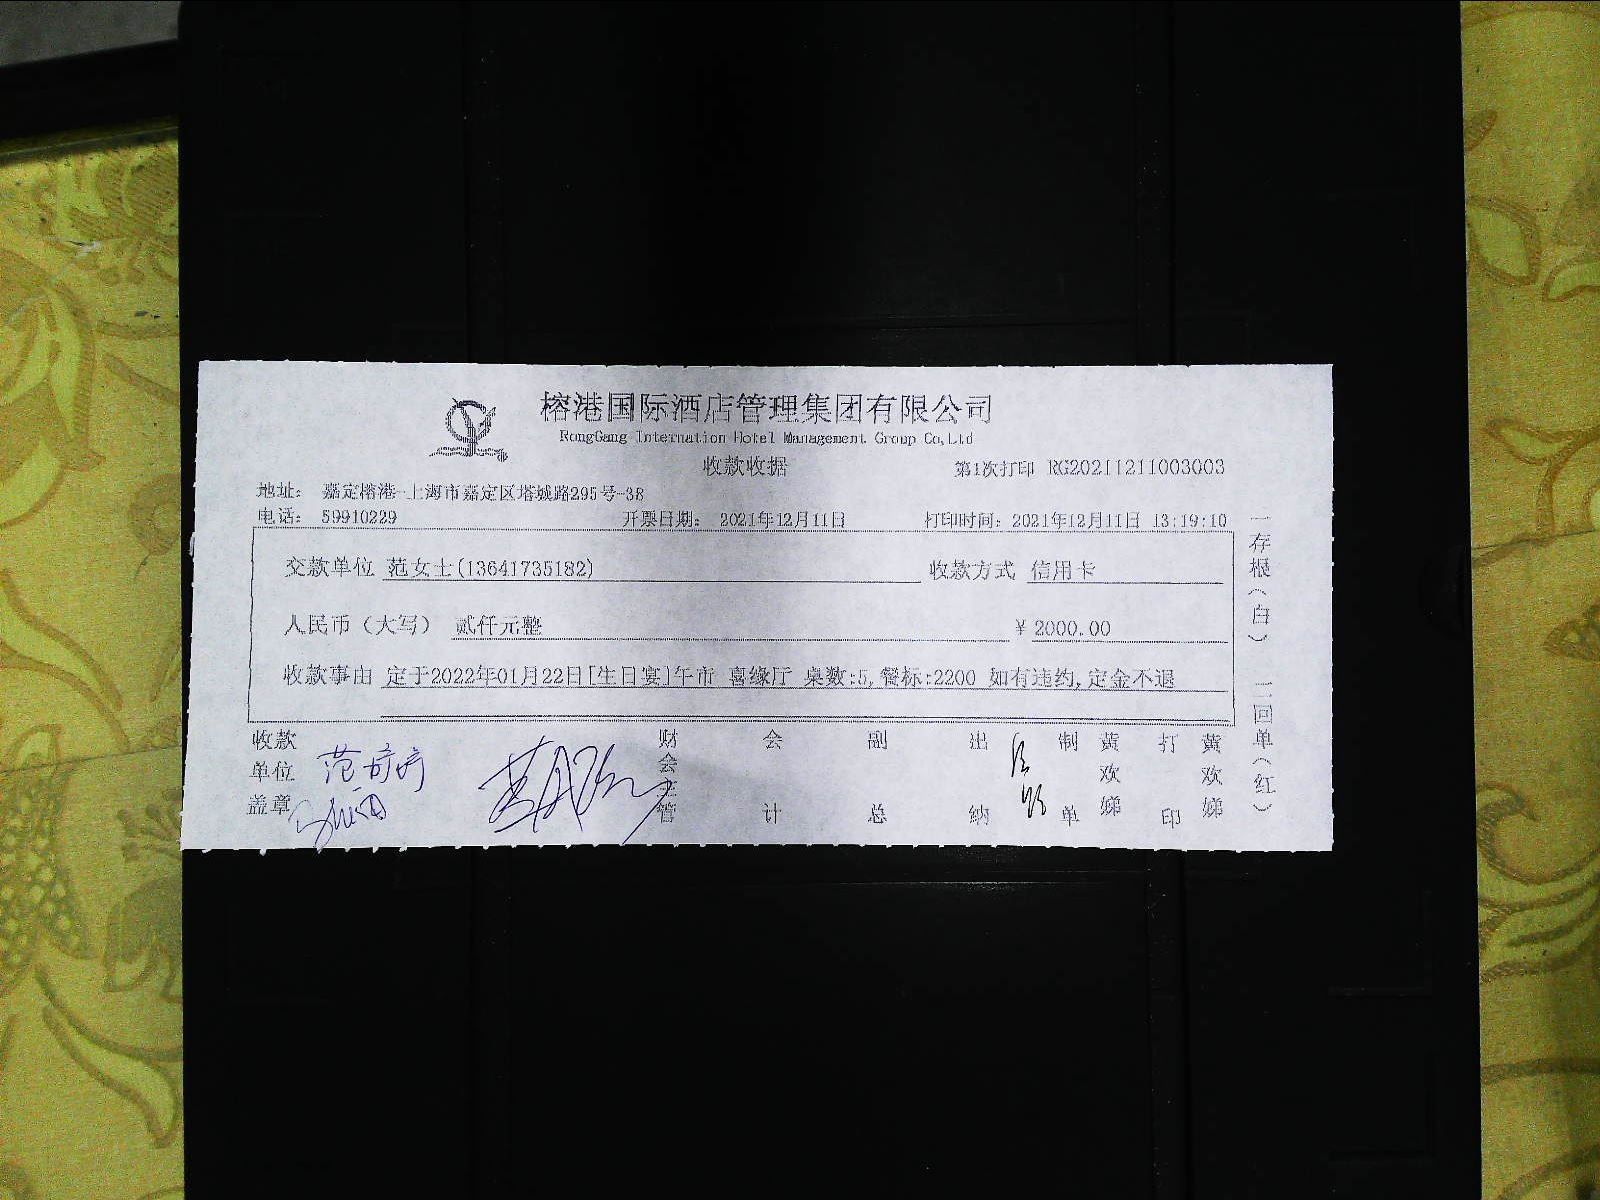 榕港国际酒店管理集团有限公司
RongGang Internation Hotel Management Group Co,Ltd
收款收据
第1次打印 RG20211211003003
地址： 嘉定榕港-上海市嘉定区塔城路295号-3B
电话： 59910229 开票日期： 2021年12月11日 打印时间：2021年12月11日 13:19:10
交款单位 范女士(13641735182) 收款方式 信用卡
人民币（大写） 贰仟元整 ￥2000.00
收款事由 定于2022年01月22日[生日宴]午市 喜缘厅 桌数:5,餐标:2200 如有违约,定金不退
收款单位盖章 财会主管 会计 副总 出纳 制单 黄欢娣 打印 黄欢娣
一存根（白） 二回单（红）